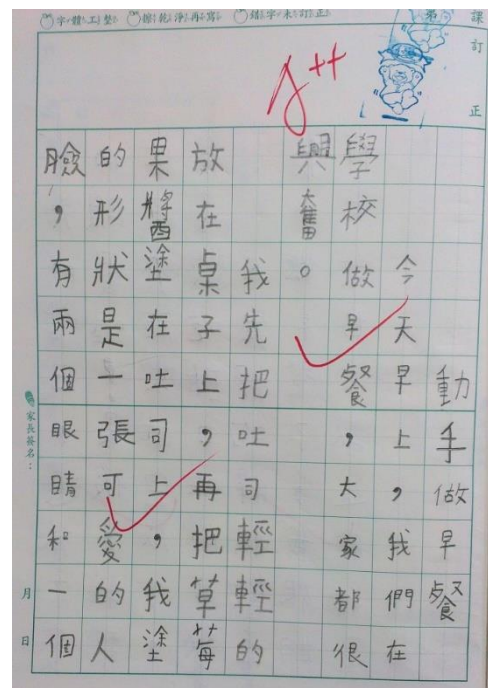 字體工整 擦乾淨再寫 錯字未訂正
第 課訂正
A++
動手做早餐
今天早上，我們在
學校做早餐，大家都很
興奮。
我先把吐司輕輕的
放在桌子上，再把草莓
果醬塗在吐司上，我塗
的形狀是一張可愛的人
臉，有兩個眼睛和一個
家長簽名：
月 日